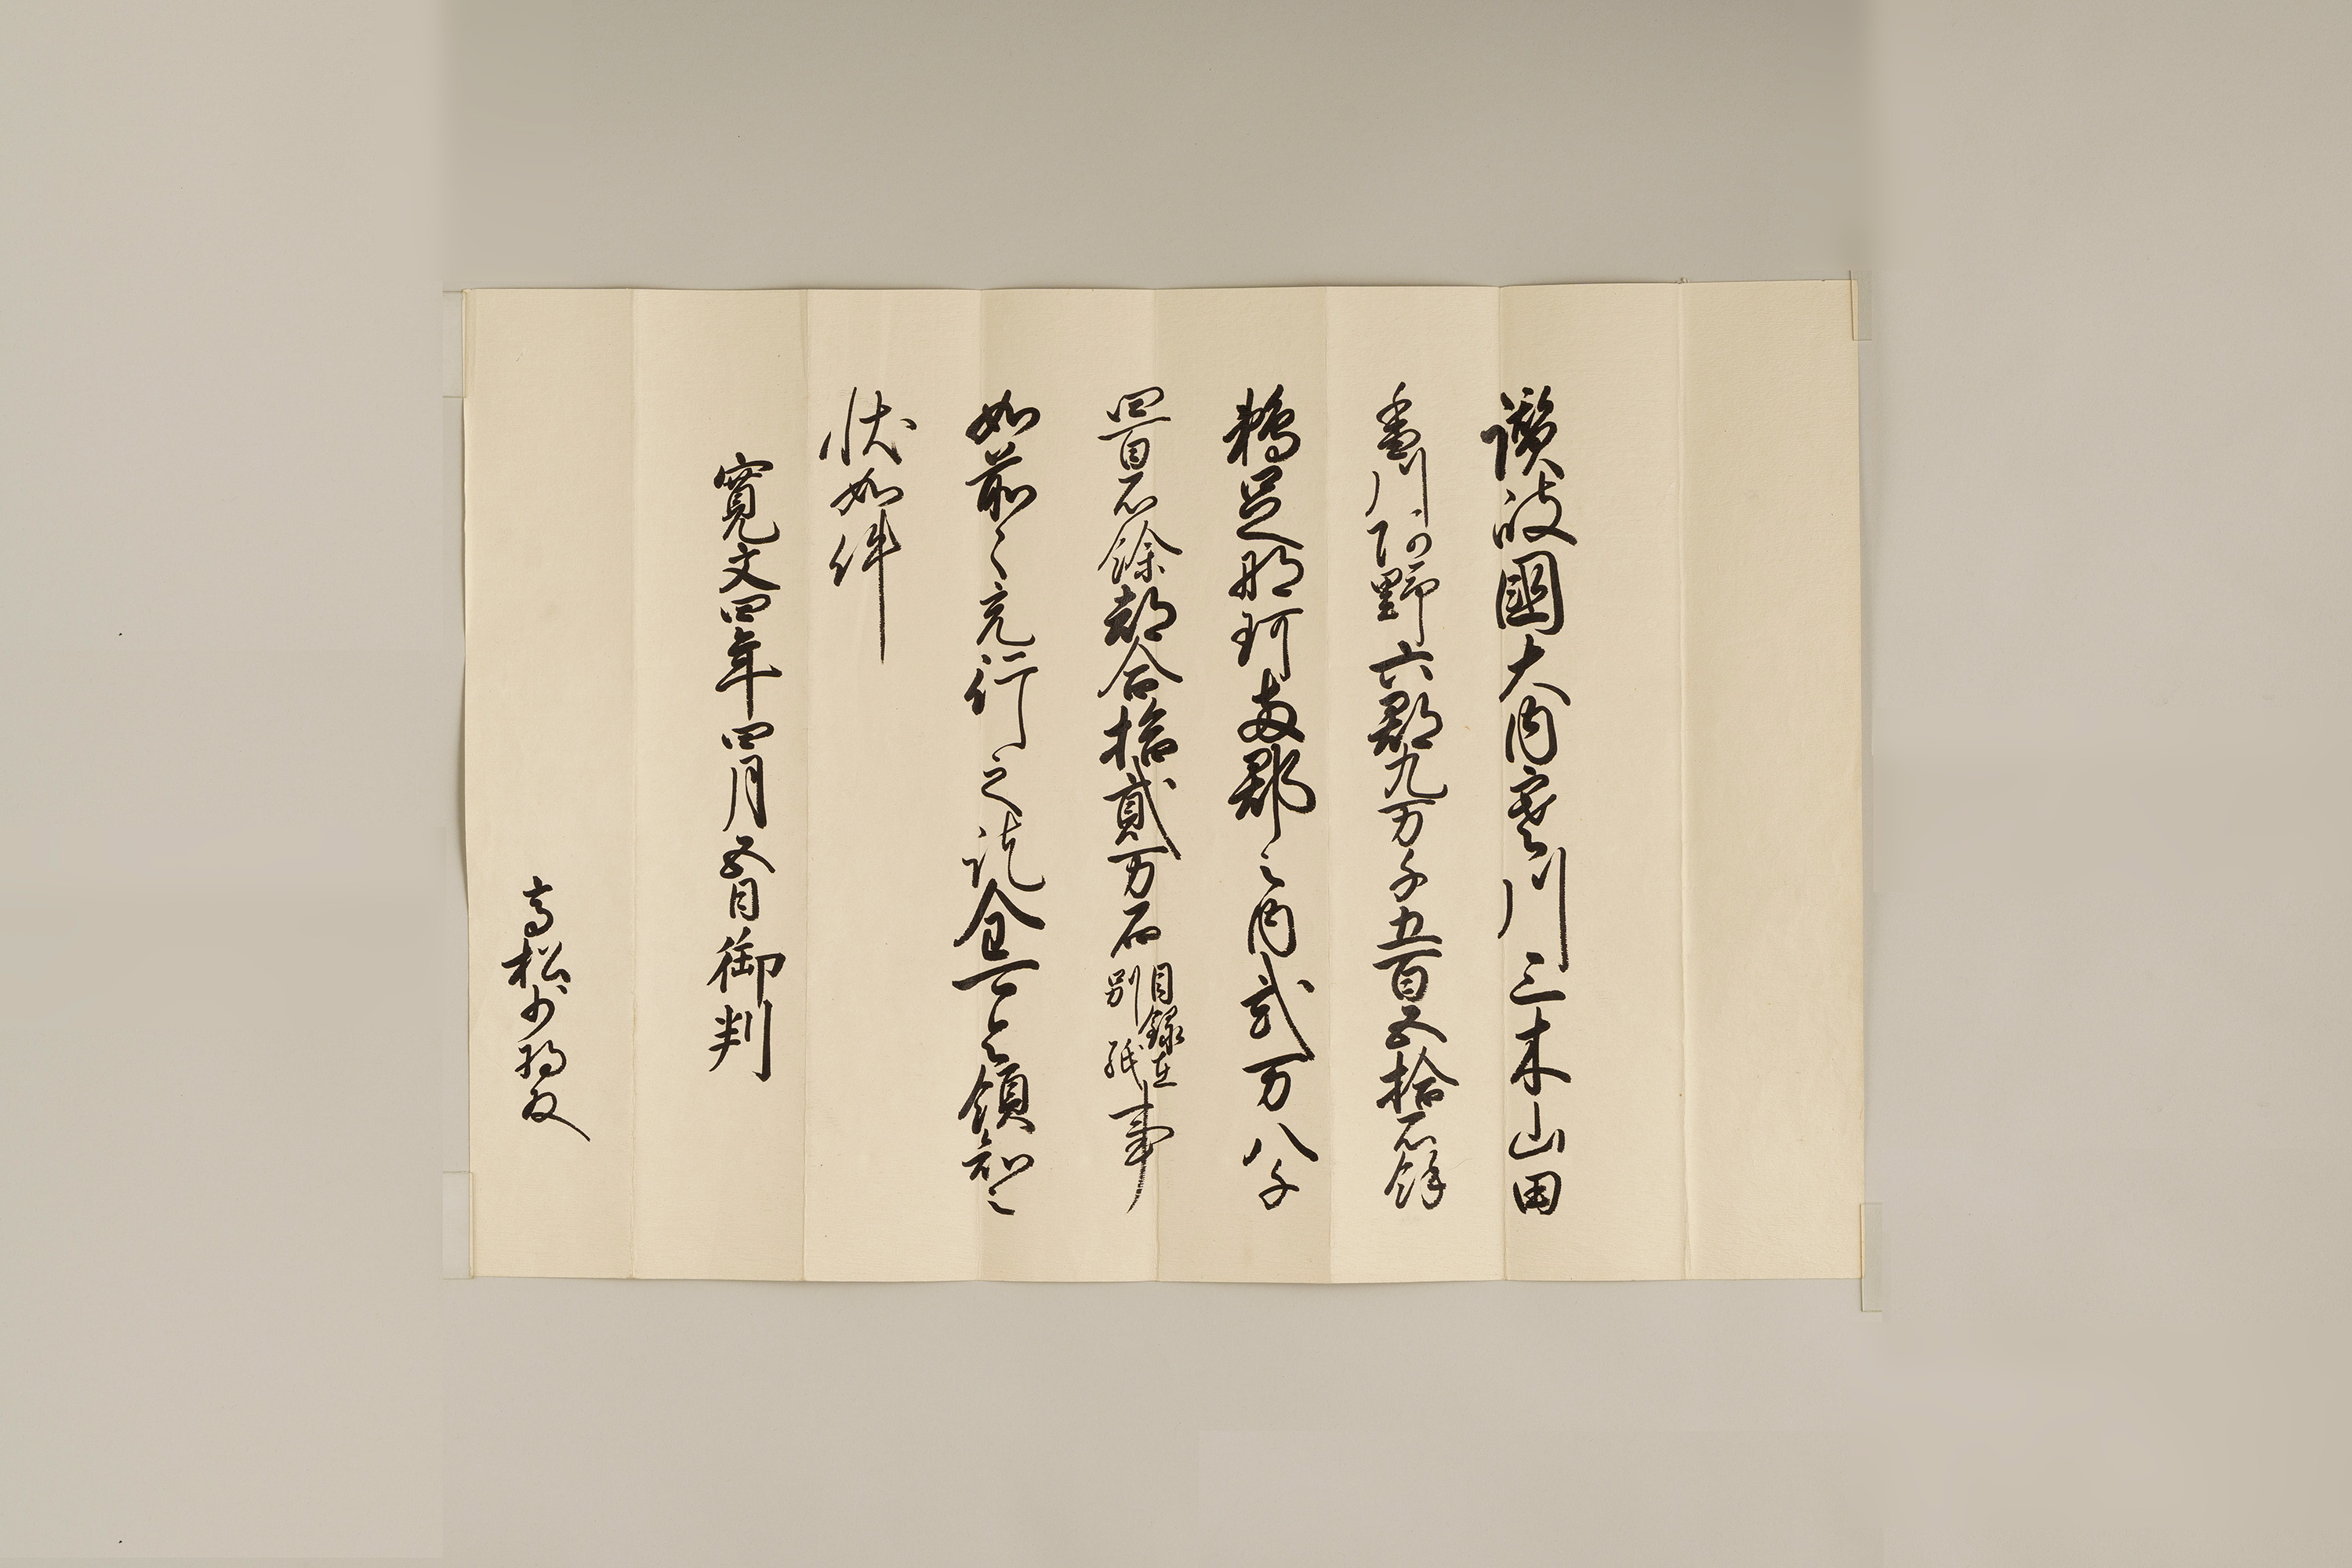 讃岐國大内寒川三木山田
香川阿野六郡九万千五百五拾石餘
鵜足那珂両郡之内弐万八千
四百石餘都合拾貳万石
目録在
別紙
事
如前々充行之訖全可令領知之
状如件
寛文四年四月五日御判
高松少将殿